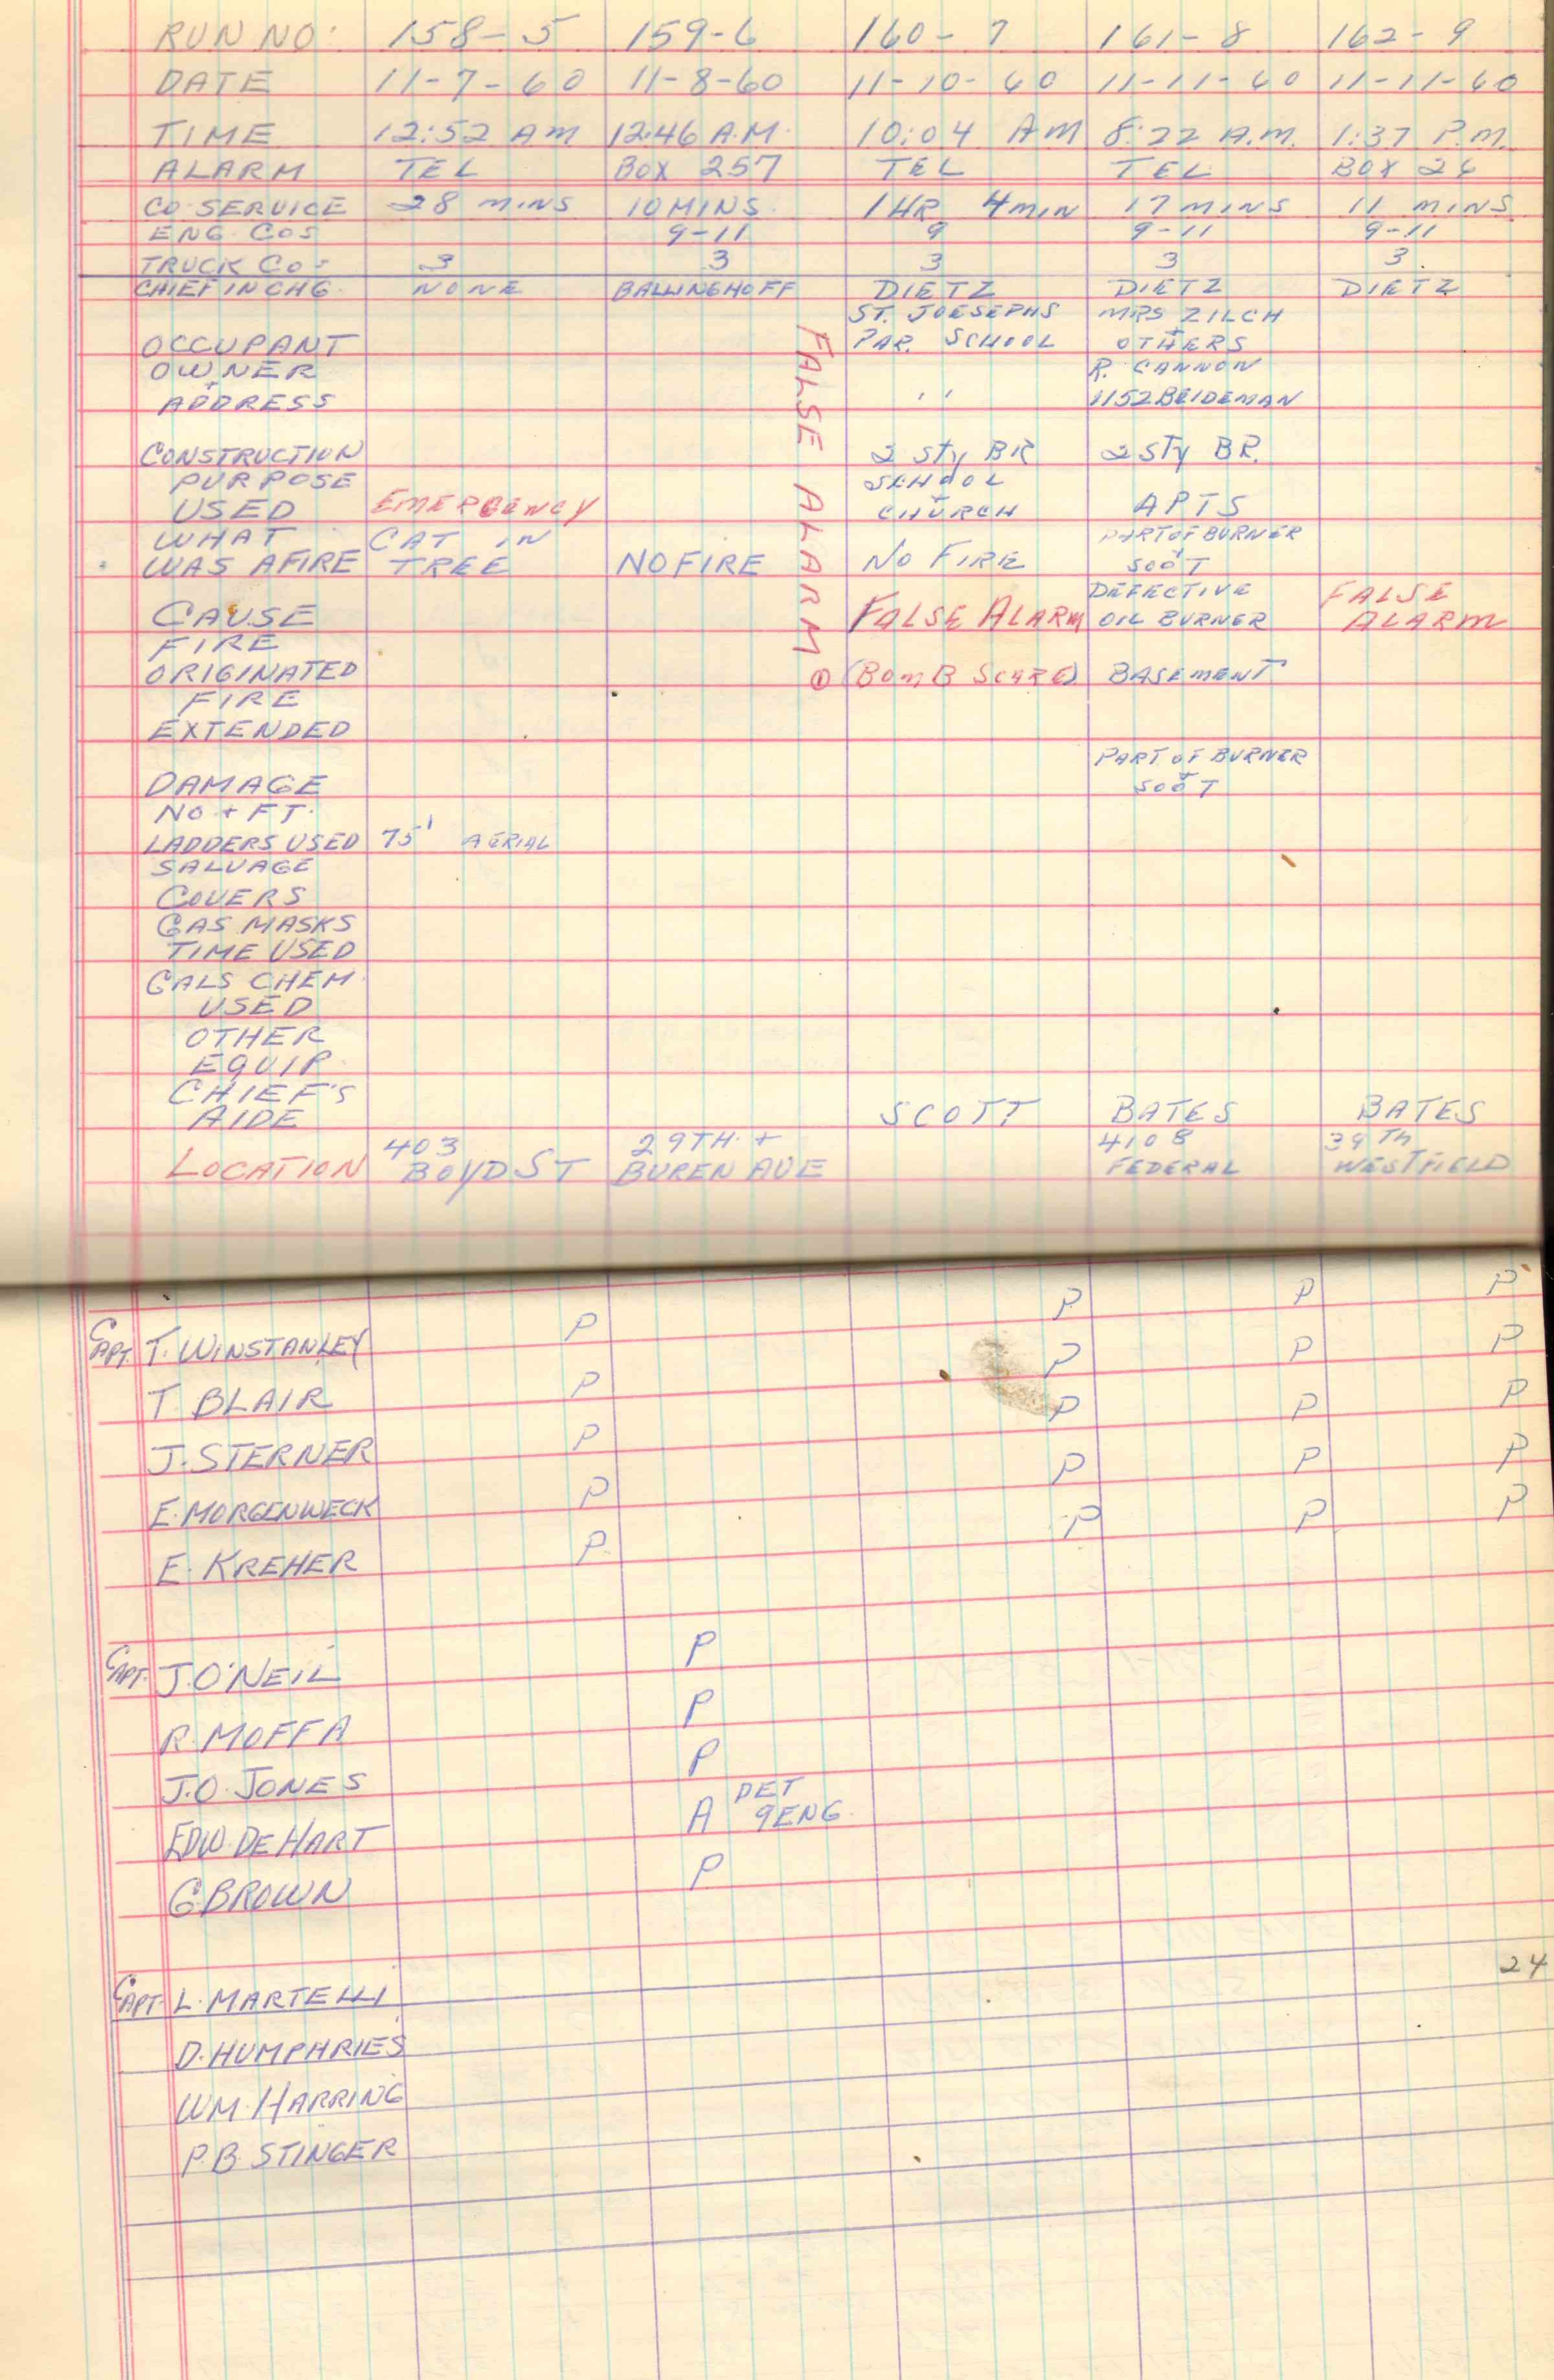 RUN NO: 158-5 159-6 160-7 161-8 162-9
DATE 11-7-60 11-8-60 11-10-60 11-11-60 11-11-60
TIME 12:52 AM 12:46 A.M. 10:04 AM 8:22 A.M. 1:37 P.M.
ALARM TEL BOX 257 TEL TEL BOX 26
CO SERVICE 28 MINS 10 MINS. 1 HR 4 MIN 17 MINS 11 MINS
ENG COS 9-11 9 9-11 9-11
TRUCK COS 3 3 3 3 3
CHIEF IN CHG. NONE BALLINGHOFF DIETZ DIETZ DIETZ
ST. JOESEPHS MRS ZILCH
OCCUPANT PAR. SCHOOL + OTHERS
OWNER R. CANNON
+ ADDRESS '' 1152 BEIDEMAN
FALSE ALARM ①
CONSTRUCTION 2 STY BR 2 STY BR.
PURPOSE SCHOOL
USED EMERGENCY + CHURCH APTS
WHAT CAT IN PART OF BURNER
WAS AFIRE TREE NO FIRE NO FIRE + SOOT
DEFECTIVE FALSE
CAUSE FALSE ALARM OIL BURNER ALARM
FIRE
ORIGINATED (BOMB SCARE) BASEMENT
FIRE
EXTENDED
PART OF BURNER
DAMAGE + SOOT
NO + FT.
LADDERS USED 75' AERIAL
SALVAGE
COVERS
GAS MASKS
TIME USED
GALS CHEM.
USED
OTHER
EQUIP.
CHIEF'S
AIDE SCOTT BATES BATES
403 29TH + 4108 39 TH
LOCATION BOYD ST BUREN AVE FEDERAL WESTFIELD
CAPT. T. WINSTANLEY P P P P
T BLAIR P P P P
J. STERNER P P P P
E. MORGENWECK P P P P
E. KREHER P P P P
CAPT. J. O'NEIL P
R. MOFFA P
J.O. JONES P
EDW. DE HART A DET 9 ENG.
G. BROWN P
24
CAPT. L. MARTELLI
D. HUMPHRIES
WM. HARRING
P.B. STINGER